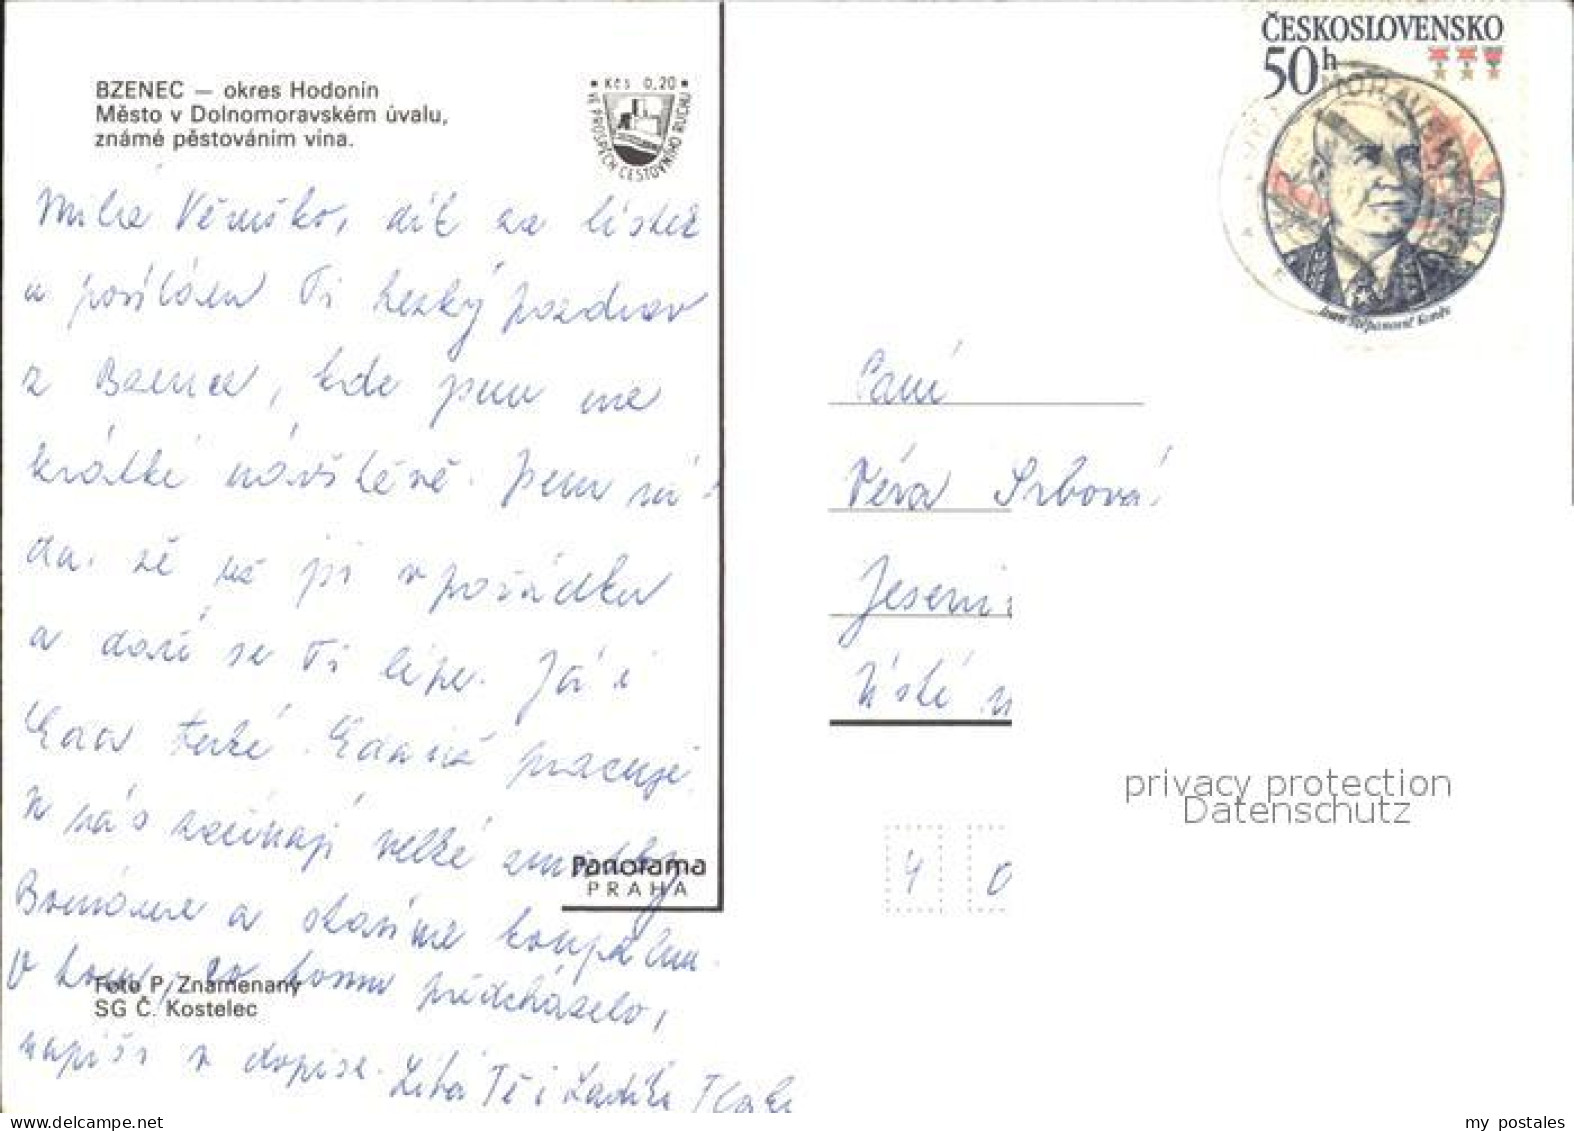 BZENEC — okres Hodonín
Město v Dolnomoravském úvalu,
známé pěstováním vína.
• Kčs 0,20 •
VE PROSPĚCH CESTOVNÍHO RUCHU
Milá Věruško, dík za lístek
a posílám Ti hezký pozdrav
z Bzence, kde jsem na
krátké návštěvě. Jsem rá-
da, že už jsi v pořádku
a daří se Ti lépe. Já i
také. pracuje.
U nás začínají velké zmatky
Bouráme a stavíme koupelnu
co tomu předcházelo,
napíši v dopise. Líbá Tě i
Panorama
PRAHA
Foto P. Znamenaný
SG Č. Kostelec
ČESKOSLOVENSKO
50h
MORAVSKÝ
Ivan Štěpanovič Koněv
Paní
Věra Srbová
Jeseni
Ústí n
4 0
privacy protection
Datenschutz
my postales